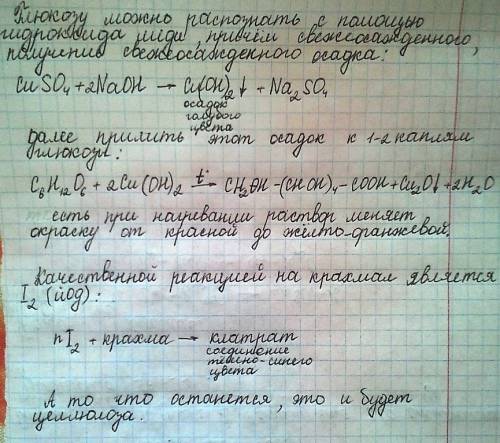 Глюкозу можно распознать с помощью
гидроксида меди, причём свежеосажденного,
получение свежеосажденного осадка:
CuSO₄ + 2NaOH → Cu(OH)₂↓ + Na₂SO₄
осадок
голубого
цвета
далее прилить этот осадок к 1-2 каплям
глюкозы:
C₆H₁₂O₆ + 2Cu(OH)₂ t→ CH₂OH-(CHOH)₄-COOH+Cu₂O↓+2H₂O
есть при нагревании раствор меняет
окраску от красной до жёлто-оранжевой.
Качественной реакцией на крахмал является
I₂ (йод):
nI₂ + крахма → клатрат
соединение
темно-синего
цвета
А то что останется, это и будет
целлюлоза.